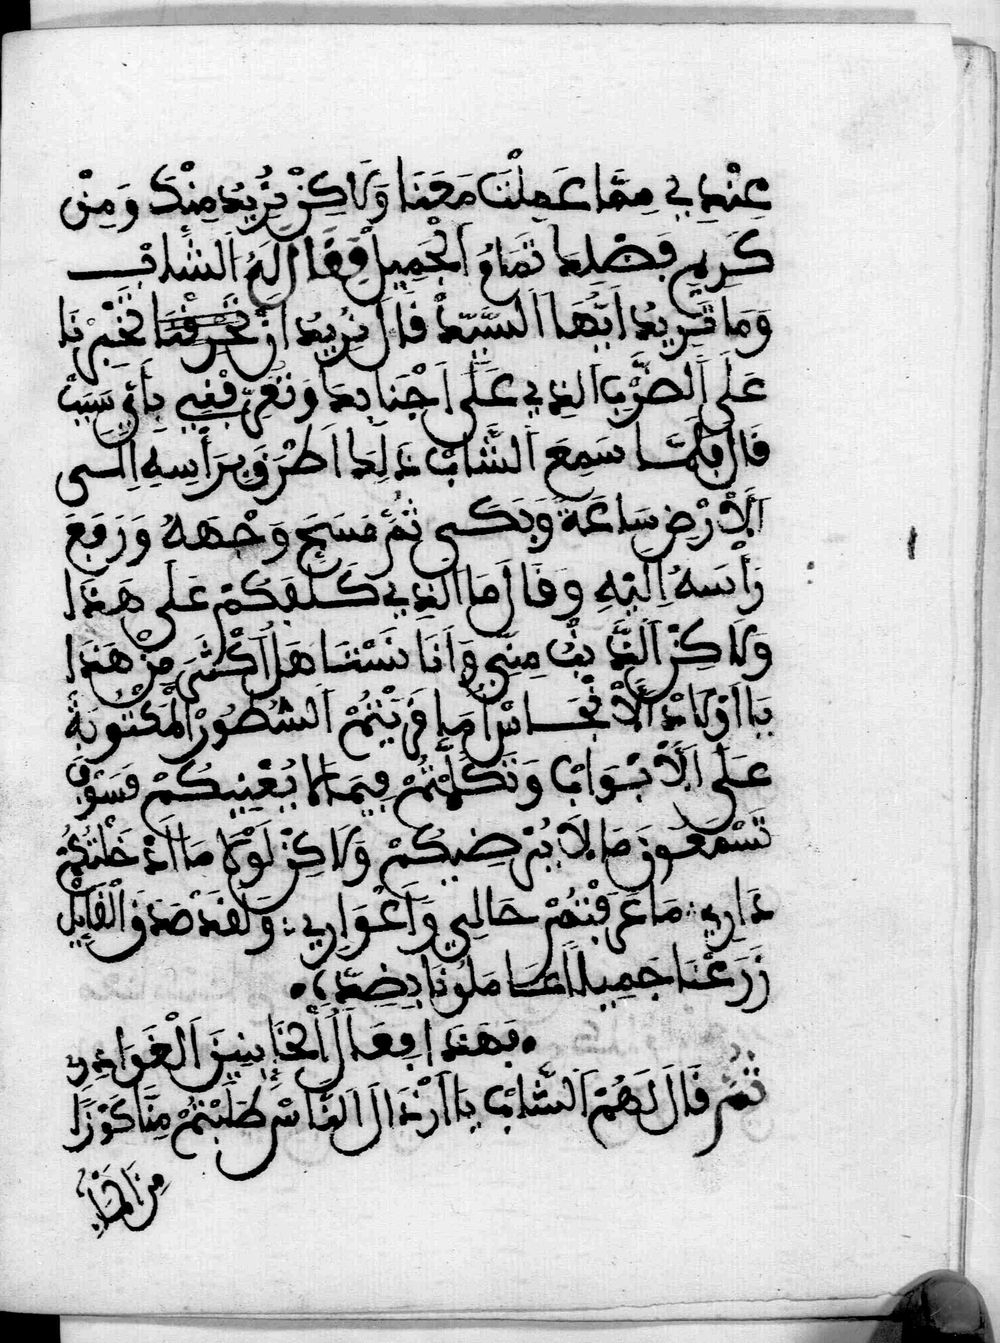 عِنْدِي مِمَّا عَمِلْتَ مَعَنَا وَلَاكِنْ نُرِيدُ مِنْكَ وَمِنْ
كَرِيمِ فَضْلِكَ تَمَامُ الْجَمِيلِ فَقَالَ لَهُ الشَّابُ
وَمَا تُرِيدُ اَيُّهَا السَّيِّدُ قَالَ نُرِيدُ اَنْ تُخْبِرْنَا
عَلَى الضَّرْبِ الذِي عَلَى اَجْنَابِكَ وَتُعَرِّفْنِي بِأَيِّ سَبَبْ
قَالَ فَلَمَّا سَمِعَ الشَّابْ ذَلِكَ اَطْرَقَ بِرَأْسِهِ اِلَى
الْاَرْضِ سَاعَةً وَبَكَى ثُمَّ مَسَحَ وَجْهَهُ وَرَفَعَ
رَأْسَهُ اِلَيْهِ وَقَالَ مَا الذِي كَلَّفَكُمْ عَلَى هَذَا
وَلَاكِنْ الذَّنْبُ مِنِّي وَاَنَا نَسْتَاهَلْ اَكْثَرْ مِنْ هَذَا
يَا اَوْلَادْ الْاَنْجَاسْ اَمَا قَرَيْتُمْ السُّطُورْ الْمَكْتُوبَةَ
عَلَى الْاَبْوَابْ وَتَكَلَّمْتُمْ فِيمَا لَا يَعْنِيكُمْ فَسَوْفَ
تَسْمَعُونَ مَا لَا يُرْضِيكُمْ وَلَاكِنْ لَوْلَا مَا اَدْخَلْتُكُمْ
دَارِي مَا عَرَفْتُمْ حَالِي وَاَعْوَارِي وَلَقَدْ صَدَقَ الْقَايِلُ
زَرَعْنَا جَمِيلًا عَامَلُونَا بِضِدِّهِ
فَهَذَا فِعَالُ الْخَايِنِينَ الْغَوَادِرِ
ثُمَّ قَالَ لَهُمْ الشَّابْ يَا اَرْذَالَ النَّاسْ طَلَبْتُمْ مِنَّا كَوْزًا
مِنَ الْمَاءِ